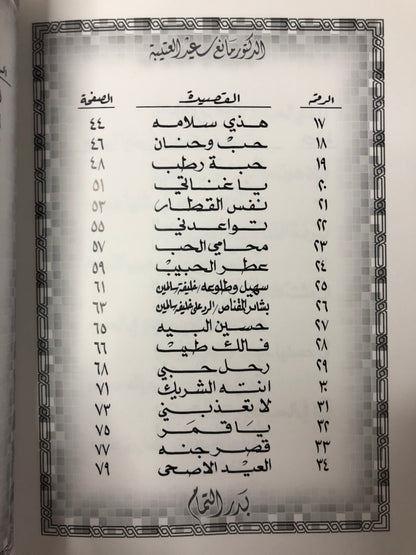 الدكتور مانع سعيد العتيبة
الرقم القصيدة الصفحة
١٧ هذي سلامه ٤٤
١٨ حب وحنان ٤٦
١٩ حبة رطب ٤٨
٢٠ يا غناتي ٥١
٢١ نفس القطار ٥٣
٢٢ تواعدني ٥٥
٢٣ محامي الحب ٥٧
٢٤ عطر الحبيب ٥٩
٢٥ سهيل وطلوعه / خليفة سالمين ٦١
٢٦ بشاير المقناص / الرد على خليفة سالمين ٦٣
٢٧ حسين البيه ٦٥
٢٨ فالك طيب ٦٦
٢٩ رحل حبي ٦٨
٣٠ انته الشريك ٧١
٣١ لا تعذبني ٧٣
٣٢ يا قمر ٧٥
٣٣ قصر جنه ٧٧
٣٤ العيد الاضحى ٧٩
بدر التمام